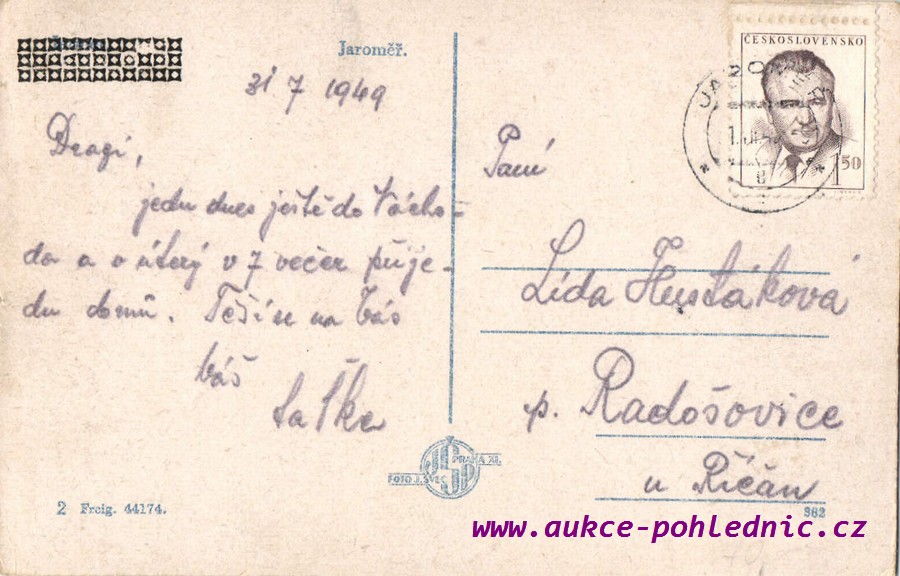 Jaroměř.
31 7 1949
Drazí,
jedu dnes ještě do Nácho-
da a v úterý v 7 večer přije-
du domů. Těším se na Vás
Váš
taťka
Paní
Lída Husťáková
p. Radošovice
u Říčan
ČESKOSLOVENSKO
1 50
JSP
PRAHA XII.
FOTO J. ŠVEC
2 Freig. 44174.
382
www.aukce-pohlednic.cz